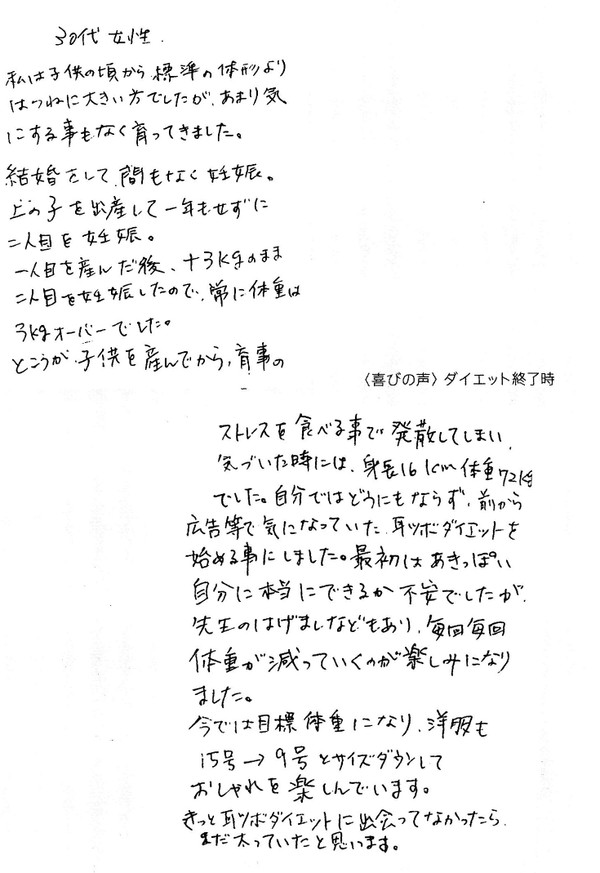 30代 女性.
私は子供の頃から標準の体形より
はつねに大きい方でしたが、あまり気
にする事もなく育ってきました。
結婚をして、間もなく妊娠。
上の子を出産して一年もせずに
二人目を妊娠。
一人目を産んだ後、+3kgのまま
二人目を妊娠したので、常に体重は
3kgオーバーでした。
ところが、子供を産んでから、育事の
〈喜びの声〉ダイエット終了時
ストレスを食べる事で発散してしまい、
気づいた時には、身長161cm体重72kg
でした。自分ではどうにもならず、前から
広告等で気になっていた耳ツボダイエットを
始める事にしました。最初はあきっぽい
自分に本当にできるか不安でしたが、
先生のはげましなどもあり、毎回毎回
体重が減っていくのが楽しみになり
ました。
今では目標体重になり、洋服も
15号→9号とサイズダウンして
おしゃれを楽しんでいます。
きっと耳ツボダイエットに出会ってなかったら、
まだ太っていたと思います。